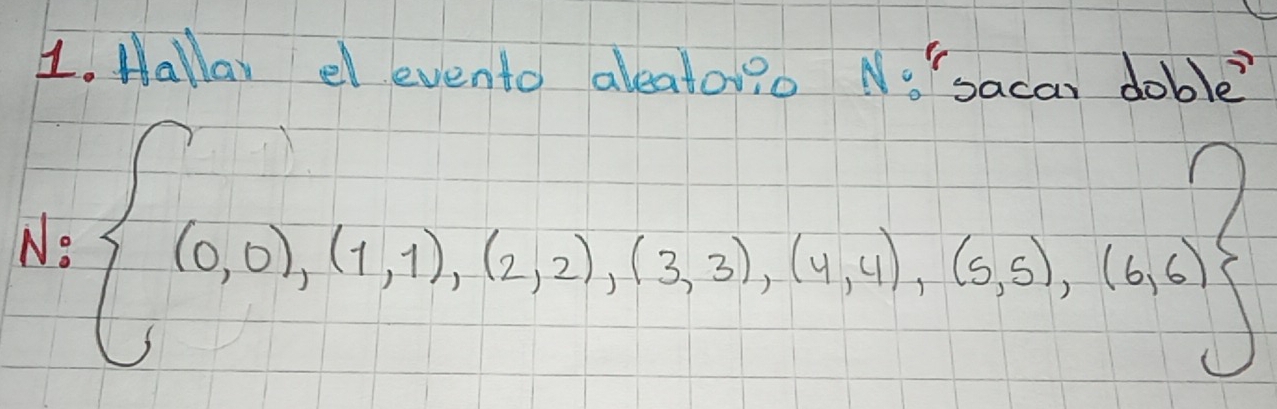 1. Hallar el evento aleatorio N: "sacar doble"
N: { (0,0), (1,1), (2,2), (3,3), (4,4), (5,5), (6,6) }